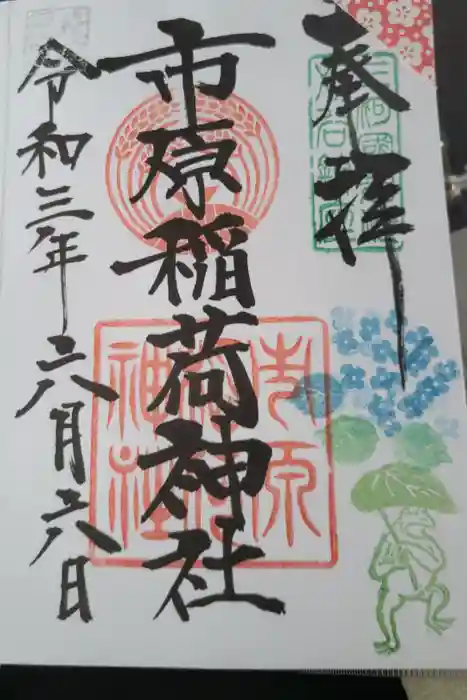 奉拝
三河國
市原稲荷神社
市原
神社
令和三年六月六日